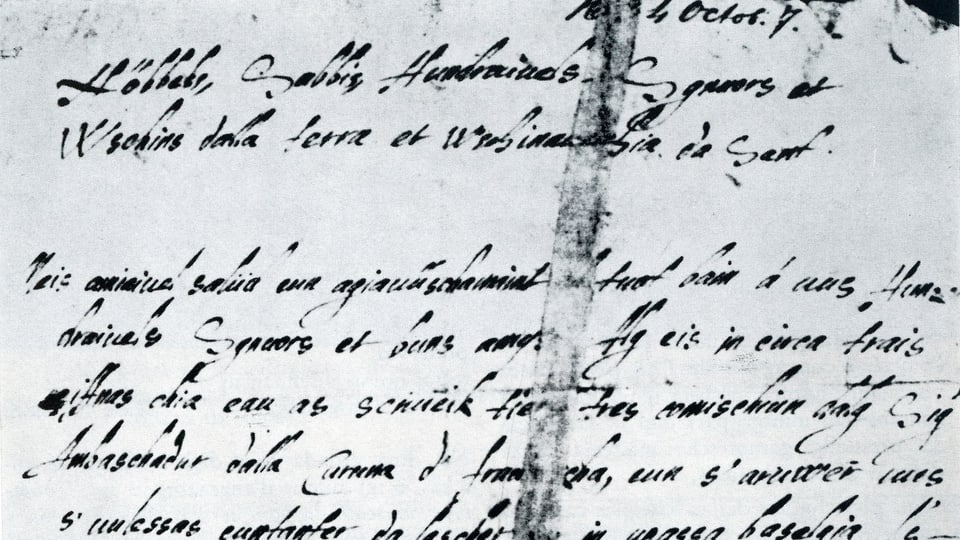 4 Octob. 7.
Nöbbels, Sabbis, Hundraivels Sgnuors et
Wschins dalla terra et Wschinauncha da Sent.
Meis amiaivel salüd cun agiavüschamaint tuot bain á vus Hun=
draivels Sgnuors et buns amys. Alg eis in circa trais
chia eau as scriveik tres comischiun dalg Sig
Ambaschadur dalla Curuna d' francscha, cun s' aruver vus
s' vulessas da laschar in vossa baselgia